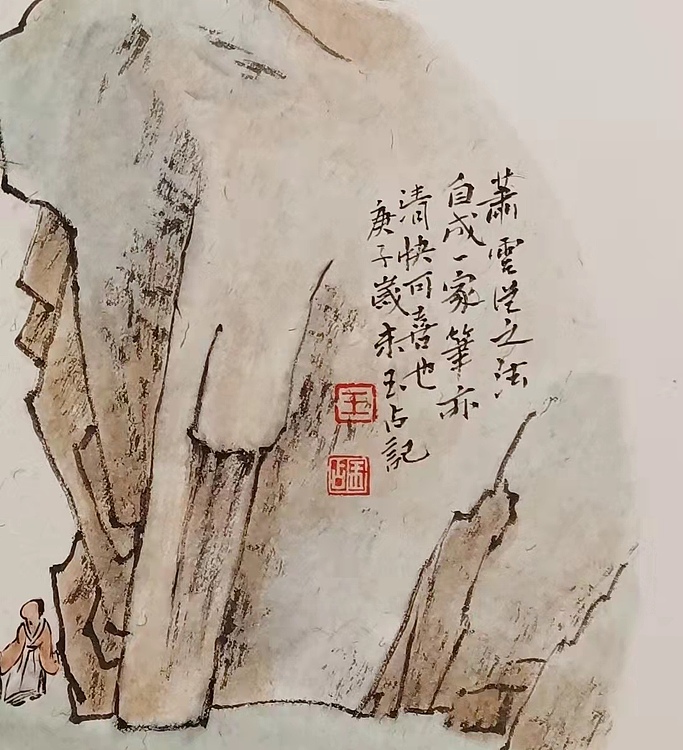 蕭雲從之法
自成一家筆亦
清快可喜也
庚子歲末玉占記
王